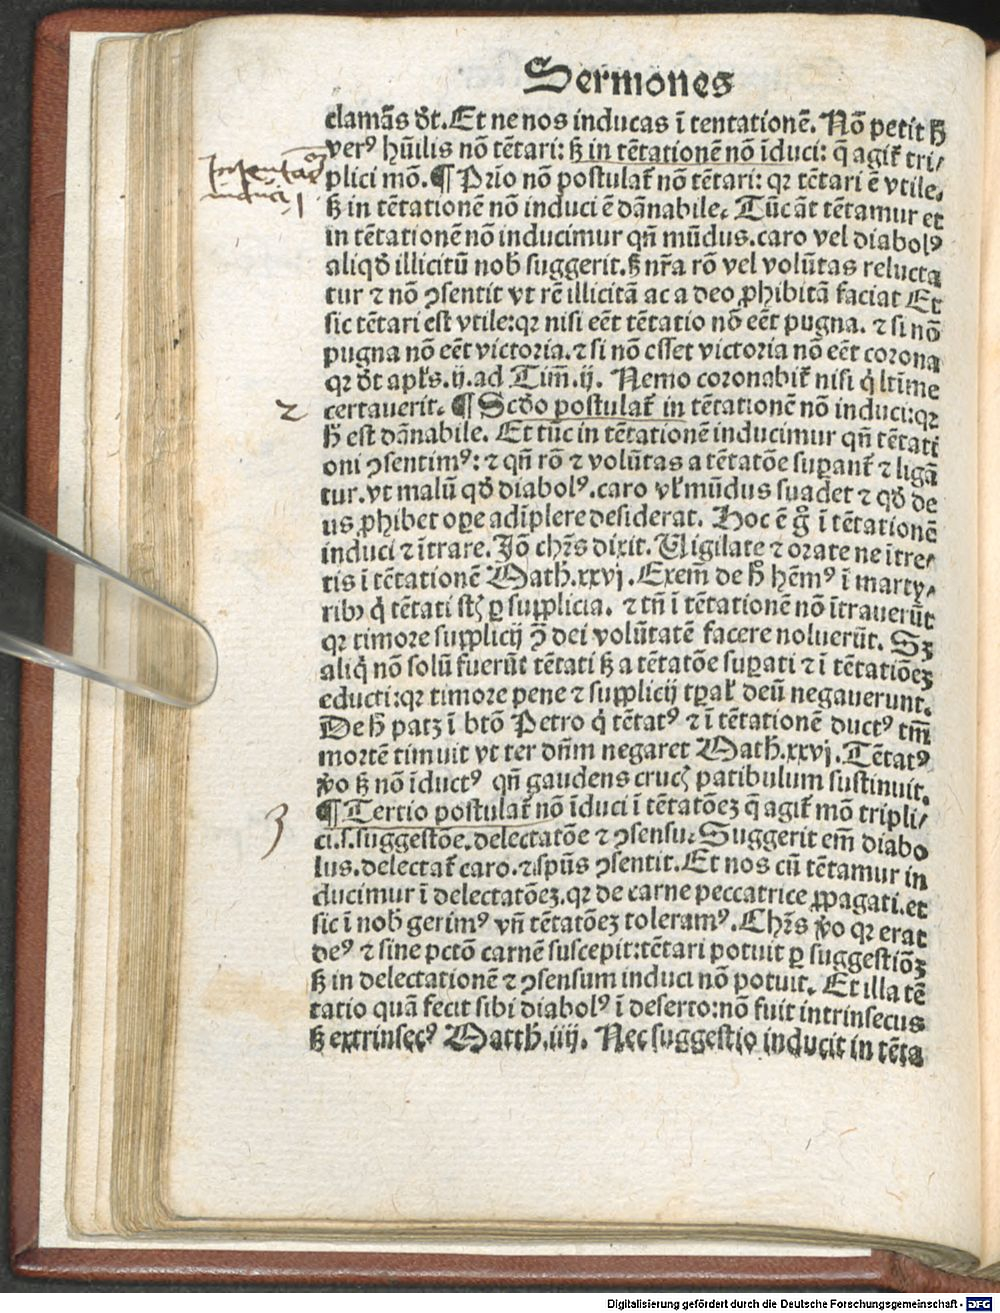 Sermones
clamās dt̄. Et ne nos inducas ī tentationē. Nō petit ꝫ
verꝰ hūilis nō tētari: ꝫ in tētationē nō īduci: q̄ agit᷑ tri⸗
plici mō. ¶ Prio nō postulat᷑ nō tētari: qꝛ tētari ē vtile.
ꝫ in tētationē nō induci ē dānabile. Tūc āt tētamur et
in tētationē nō inducimur qn̄ mūdus. caro vel diabolꝰ
aliqd̄ illicitū nob̄ suggerit. ꝫ nr̄a rō vel volūtas relucta
tur ⁊ nō ꝯsentit vt rē illicitā ac a deo ꝓhibitā faciat Et
sic tētari est vtile: qꝛ nisi eēt tētatio nō eēt pugna. ⁊ si nō
pugna nō eēt victoria. ⁊ si nō esset victoria nō eēt corona
qꝛ dt̄ apl's. ij. ad Tim̄. ij. Nemo coronabit᷑ nisi q̇ ltīme
certauerit. ¶ Scdo postulat᷑ in tētationē nō induci: qꝛ
h̄ est dānabile. Et tūc in tētationē inducimur qn̄ tētati
oni ꝯsentimꝰ: ⁊ qn̄ rō ⁊ volūtas a tētatōe suꝑant᷑ ⁊ ligā
tur. vt malū qd̄ diabolꝰ. caro vl' mūdus suadet ⁊ qd̄ de
us ꝓhibet oꝑe adīplere desiderat. Hoc ē g̊ ī tētationē
induci ⁊ ītrare. Jō chr̄s dixit. Vigilate ⁊ orate ne ītre⸗
tis ī tētationē Math̄. xxvj. Exem̄ de h̄ hēmꝰ ī marty⸗
ribꝰ q̇ tētati st̄ ꝑ supplicia. ⁊ tn̄ ī tētationē nō ītrauerūt
qꝛ timore supplicij ꝯ̄ dei volūtatē facere noluerūt. Sꝫ
aliq̇ nō solū fuerūt tētati ꝫ a tētatōe suꝑati ⁊ ī tētatiōeꝫ
educti: qꝛ timore pene ⁊ supplicij tꝑal' deū negauerunt.
De h̄ patꝫ ī btō Petro q̇ tētatꝰ ⁊ ī tētationē ductꝰ tm̄
mortē timuit vt ter dn̄m negaret Math̄. xxvj. Tētatꝰ
v̊o ꝫ nō īductꝰ qn̄ gaudens cruc̄ patibulum sustinuit.
¶ Tertio postulat᷑ nō īduci ī tētatōeꝫ q̄ agit᷑ mō tripli⸗
ci. s. suggestōe. delectatōe ⁊ ꝯsensu: Suggerit em̄ diabo
lus. delectat᷑ caro. ⁊ spūs ꝯsentit. Et nos cū tētamur in
ducimur ī delectatōeꝫ. qꝛ de carne peccatrice ꝓpagati. et
sic ī nob̄ gerimꝰ vn̄ tētatōeꝫ toleramꝰ. Chr̄s v̊o qꝛ erat
deꝰ ⁊ sine pctō carnē suscepit: tētari potuit ꝑ suggestiōꝫ
ꝫ in delectationē ⁊ ꝯsensum induci nō potuit. Et illa tē
tatio quā fecit sibi diabolꝰ ī deserto: nō fuit intrinsecus
ꝫ extrinsecꝰ Matth̄. iiij. Nec suggestio inducit in tēta
2
3
Digitalisierung gefördert durch die Deutsche Forschungsgemeinschaft - DFG